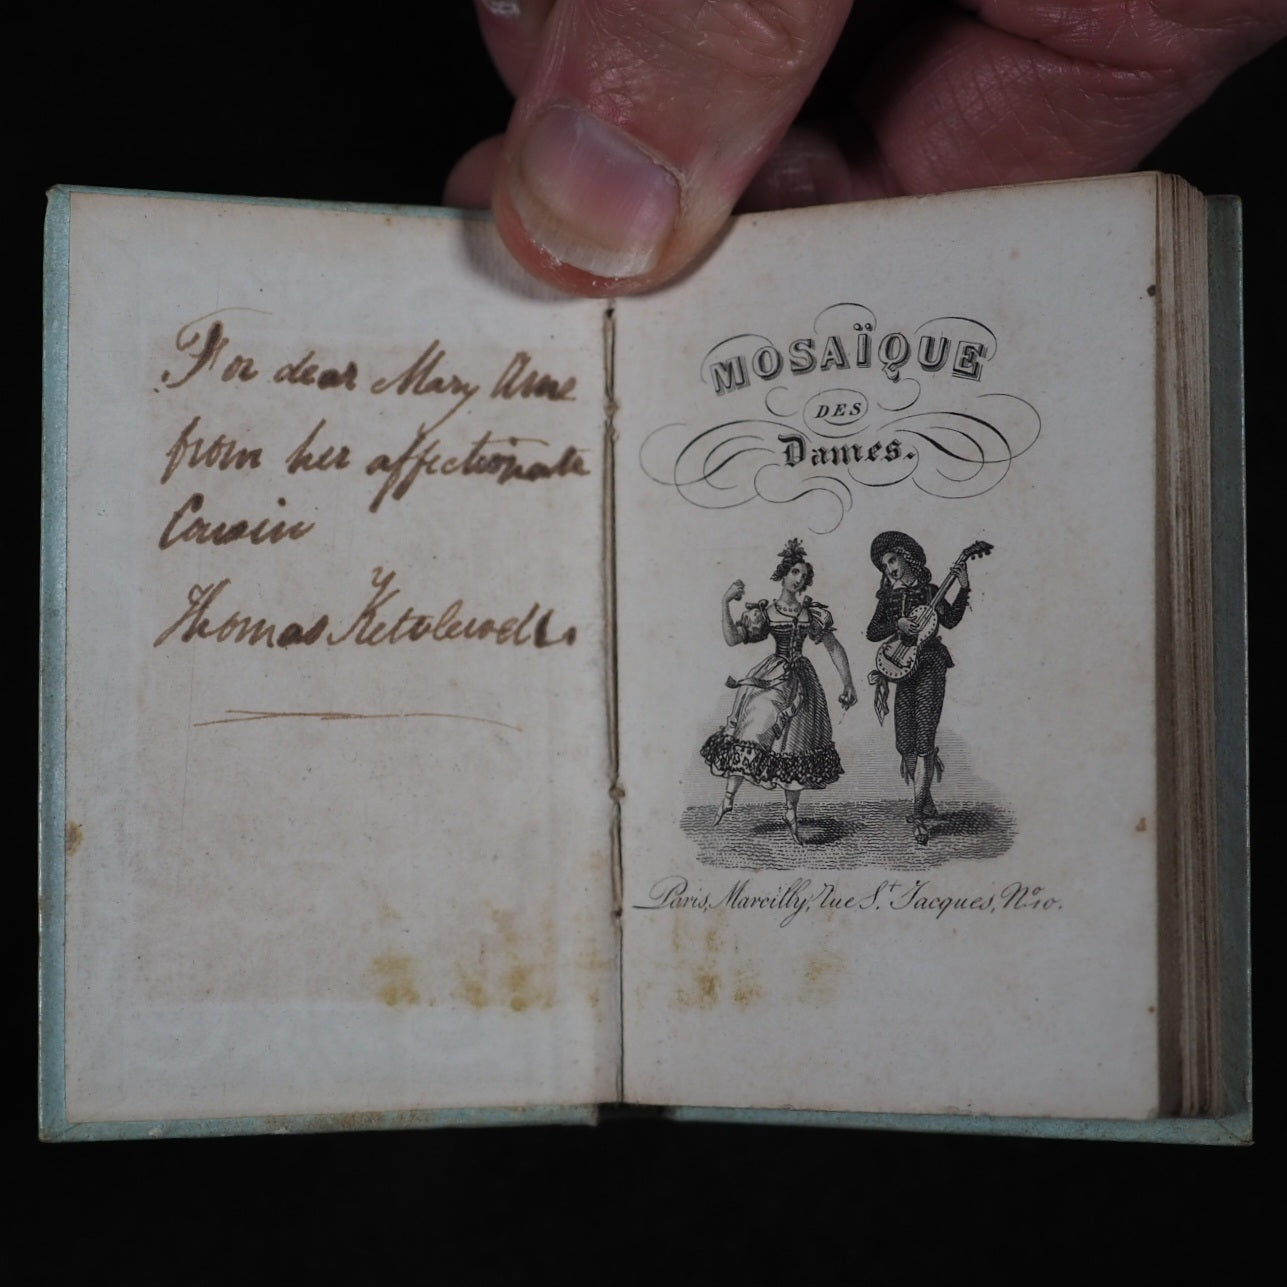 For dear Mary Anne
from her affectionate
Cousin
Thomas Ketolewell.
MOSAÏQUE
DES
Dames.
Paris, Marcilly, rue St. Jacques, No. 10.